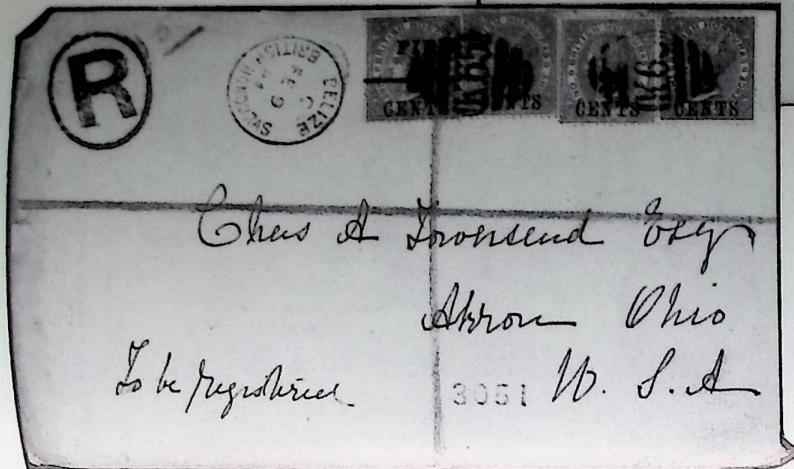 R
BELIZE
BRITISH HONDURAS
CENTS CENTS CENTS CENTS
Chas A Townsend Esq
Akron Ohio
To be registered
3051 U. S. A